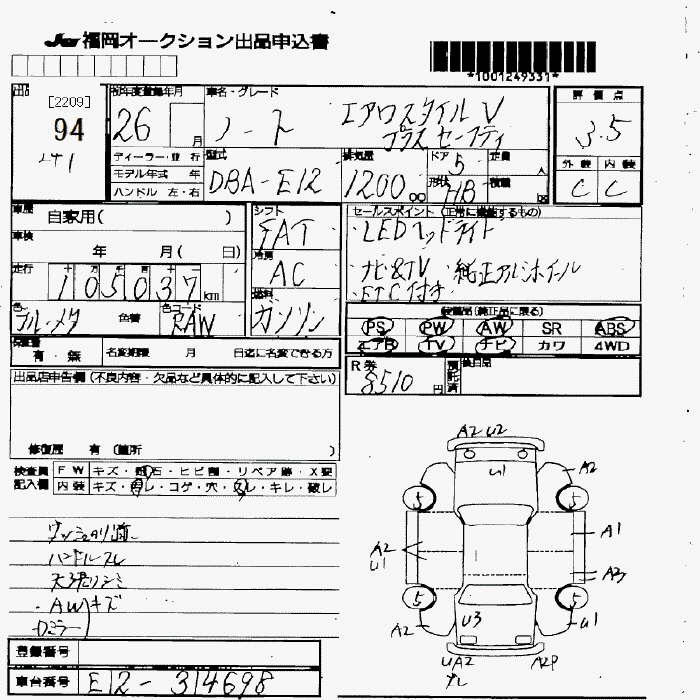 JAA 福岡オークション出品申込書
*1001249331*
出品
[2209]
94
241
初年度登録年月
26 月
ディーラー・並行
モデル年式 年
ハンドル 左・右
車名・グレード
ノート エアロスタイル V
プラスセーフティ
型式
DBA-E12
排気量
1200 cc
ドア
5
形状
HB
定員
人
積載
評価点
3.5
外装 内装
C C
車歴 自家用( )
車検
年 月( 日)
走行
十 万 千 百 十
105037 km
色
ブルーメタ
色替
色コード
RAW
シフト
FAT
冷房
AC
燃料
ガソリン
セールスポイント (正常に機能するもの)
・LEDヘッドライト
・ナビ&TV ・純正アルミホイール
・ETC付き
装備品(純正品に限る)
PS PW AW SR ABS
エアB TV ナビ カワ 4WD
保証書
有・無
名変期限 月 日迄に名変できる方
R券
8510 円
預託済
後日品
出品店申告欄 (不良内容・欠品など具体的に記入して下さい)
修復歴 有 (箇所 )
検査員
記入欄
FW キズ・飛石・ヒビ割・リペア跡・X要
内装 キズ・汚レ・コゲ・穴・スレ・キレ・破レ
ハンドルスレ
天張リシミ
・AW キズ
・ロミラー
A2 U2
U1
A2
5 5
A1
A2
U1
A3
5 5
A2
U3
U1
UA2
A2P
登録番号
車台番号 E12-314698